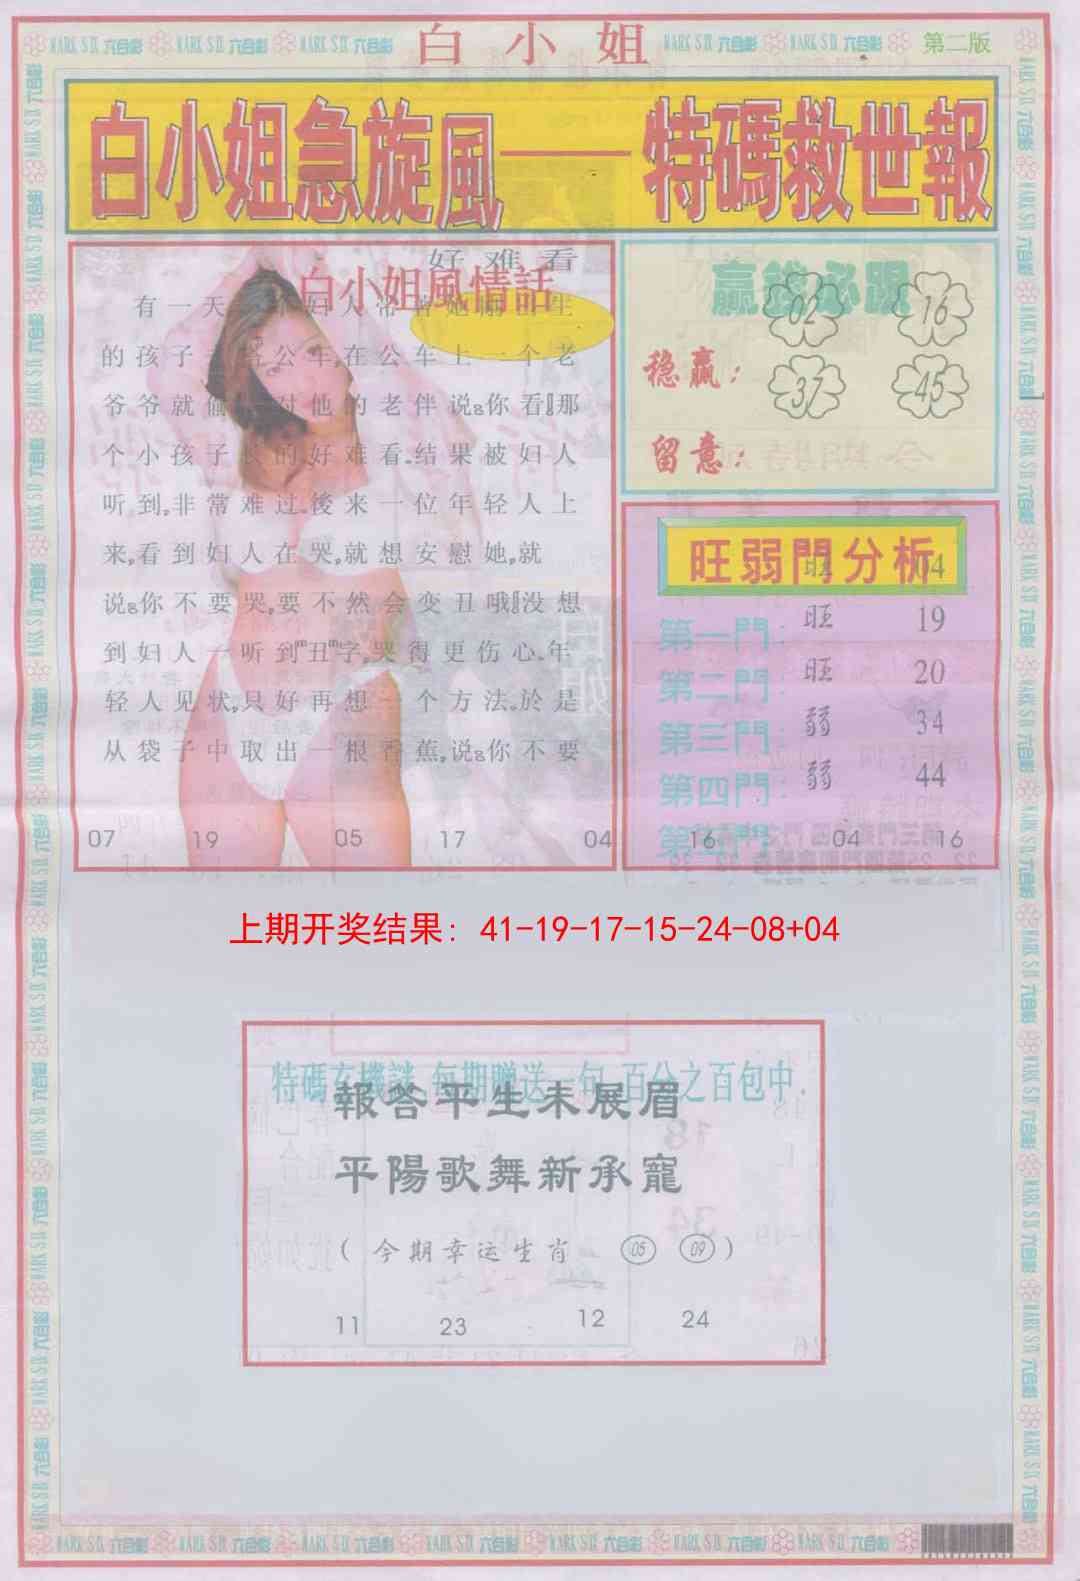 白小姐
第二版
白小姐急旋風——特碼救世報
白小姐風情話
好难看
有一天 妇人带著她刚出生
的孩子 公车,在公车上一个老
爷爷就偷 对他的老伴说:你看!那
个小孩子 的好难看.结果被妇人
听到,非常难过.後来一位年轻人上
来,看到妇人在哭,就想安慰她,就
说:你不要哭,要不然会变丑哦!没想
到妇人一听到"丑"字,哭得更伤心.年
轻人见状,只好再想一个方法.於是
从袋子中取出一根香蕉,说:你不要
07 19 05 17 04
赢钱必跟
02 16
稳赢:
37 45
留意:
旺弱門分析
旺 04
第一門: 旺 19
第二門: 旺 20
第三門: 弱 34
第四門: 弱 44
第五門:
16 04 16
上期开奖结果: 41-19-17-15-24-08+04
特碼玄機謎,每期贈送一句,百分之百包中.
報答平生未展眉
平陽歌舞新承寵
(今期幸运生肖 05 09)
11 23 12 24
MARK SIX 六合彩